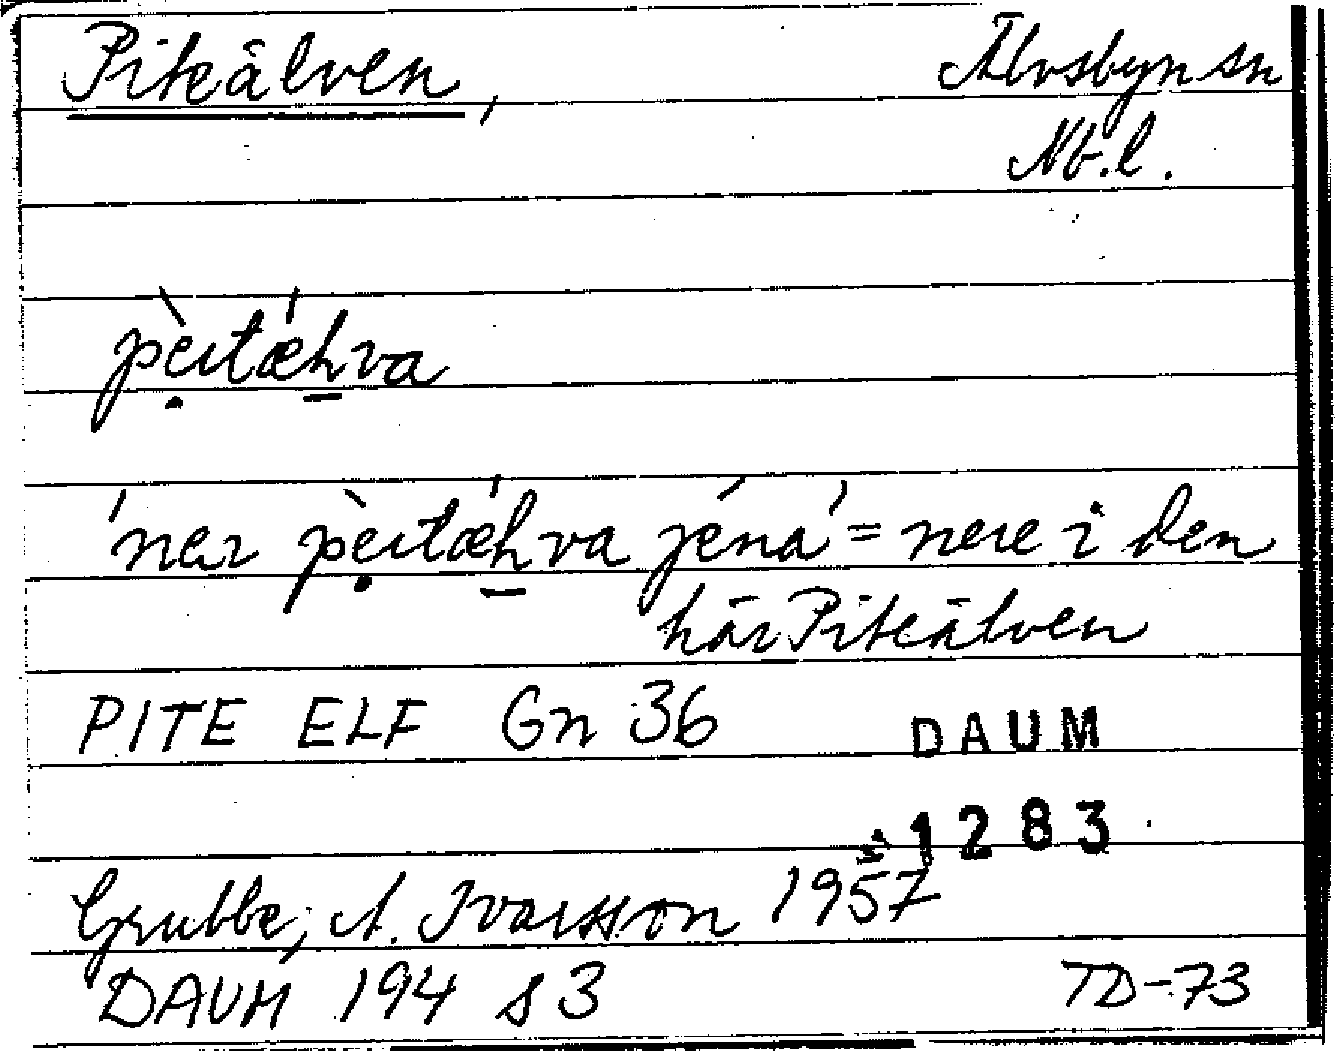 Piteälven, Älvsbyn sn
Nb.l.
pèitǽhva
'ner pèitǽhva jéna' = nere i den
här Piteälven
PITE ELF Gn 36 DAUM
1283
Grubbe, A. Ivarsson 1957
DAUM 194 s 3 TD-73